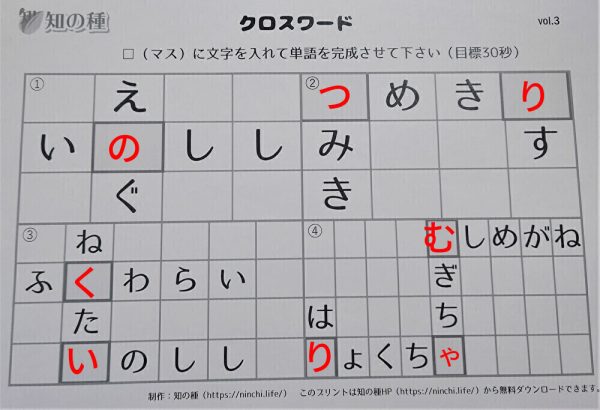 知の種
クロスワード
vol.3
□（マス）に文字を入れて単語を完成させて下さい（目標30秒）
① え ② つ め き り
い の し し み す
ぐ き
③ ね ④ む し め が ね
ふ く わ ら い ぎ
た は ち
い の し し り ょ く ち ゃ
制作：知の種（https://ninchi.life/） このプリントは知の種HP（https://ninchi.life/）から無料ダウンロードできます。